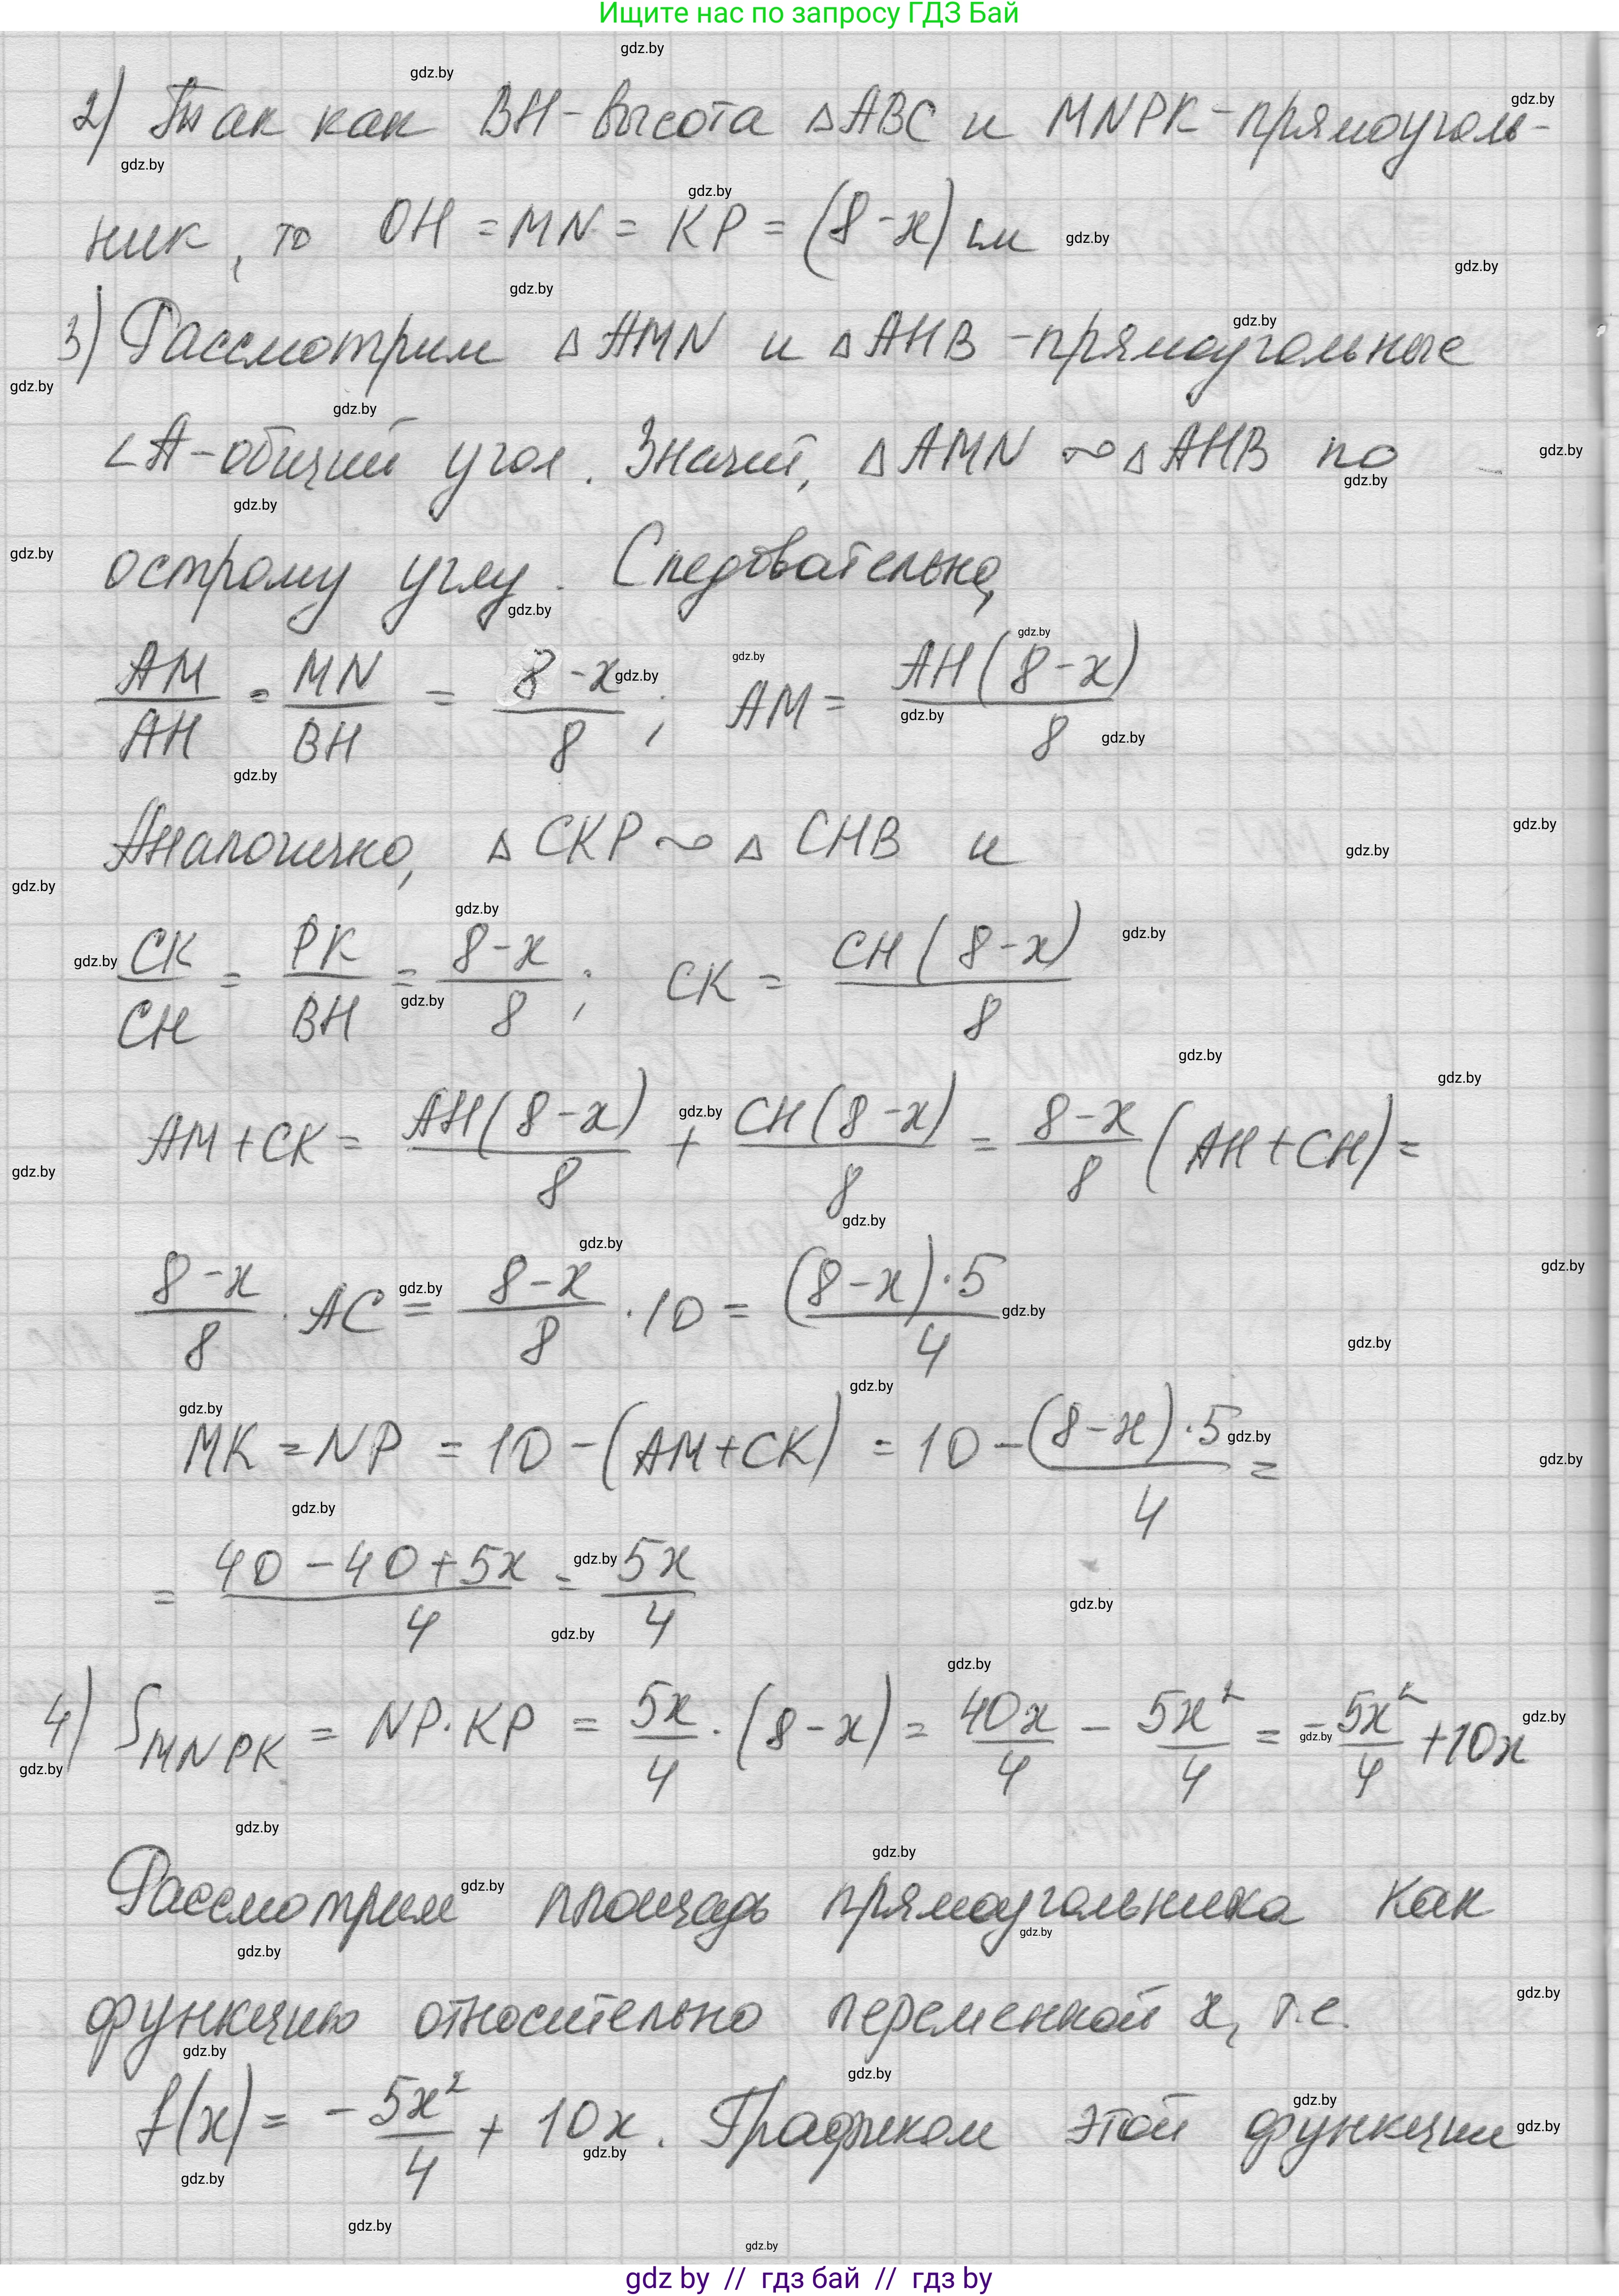 Ищите нас по запросу ГДЗ Бай
2) Так как BH-высота △ABC и MNPK-прямоуголь-
ник, то OH = MN = KP = (8-x) см
3) Рассмотрим △AMN и △AHB -прямоугольные
∠A-общий угол. Значит, △AMN ∾ △AHB по
острому углу. Следовательно,
AM/AH = MN/BH = (8-x)/8 ; AM = AH(8-x)/8
Аналогично, △CKP ∾ △CHB и
CK/CH = PK/BH = (8-x)/8 ; CK = CH(8-x)/8
AM+CK = AH(8-x)/8 + CH(8-x)/8 = (8-x)/8 (AH+CH) =
(8-x)/8 · AC = (8-x)/8 · 10 = (8-x)·5/4
MK = NP = 10-(AM+CK) = 10 - (8-x)·5/4 =
= (40-40+5x)/4 = 5x/4
4) S MNPK = NP·KP = 5x/4 · (8-x) = 40x/4 - 5x²/4 = -5x²/4 + 10x
Рассмотрим площадь прямоугольника как
функцию относительно переменной x, т.е.
f(x) = -5x²/4 + 10x. Графиком этой функции
gdz by // гдз бай // гдз by